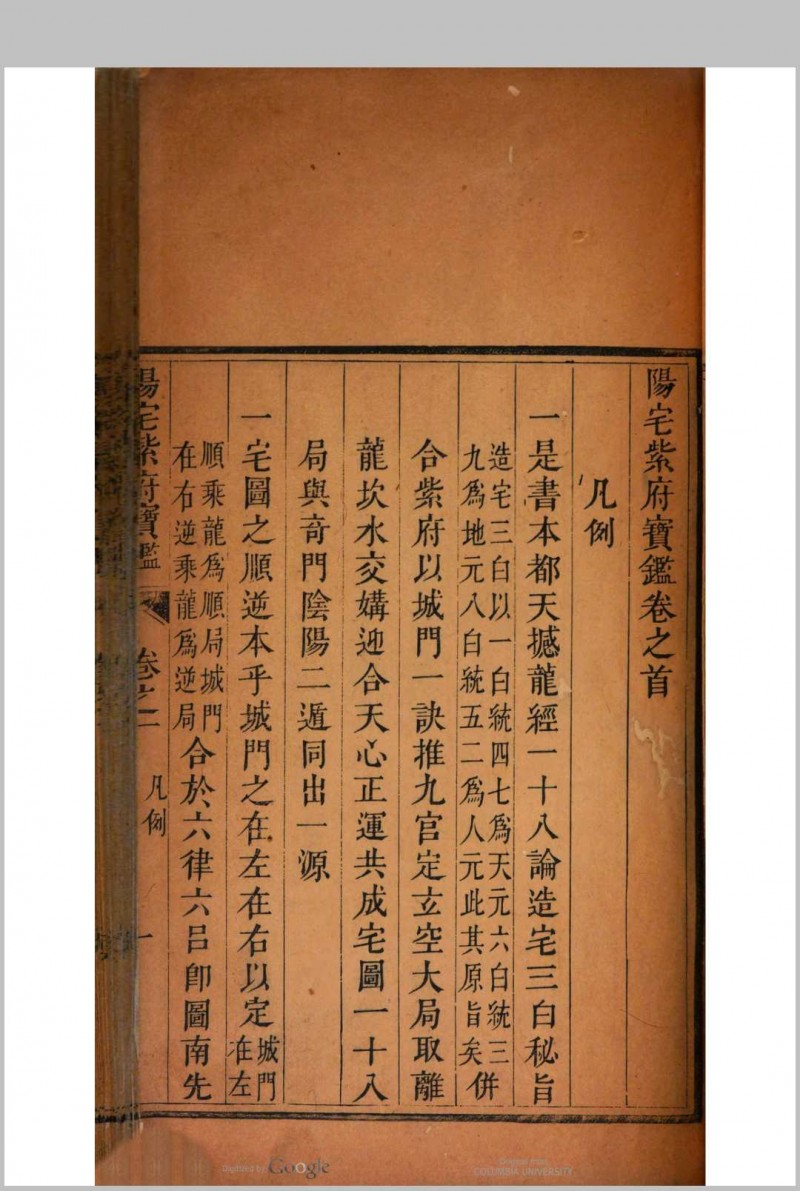 陽宅紫府寶鑑卷之首
凡例
一是書本都天撼龍經一十八論造宅三白秘旨
造宅三白以一白統四七爲天元六白統三
九爲地元八白統五二爲人元此其原旨矣併
合紫府以城門一訣推九宮定玄空大局取離
龍坎水交媾迎合天心正運共成宅圖一十八
局與奇門陰陽二遁同出一源
一宅圖之順逆本乎城門之在左在右以定城門
在左
順乘龍爲順局城門
在右逆乘龍爲逆局合於六律六呂卽圖南先
陽宅紫府寶鑑
卷之
凡例
一
Digitized by Google
Original from
COLUMBIA UNIVERSITY